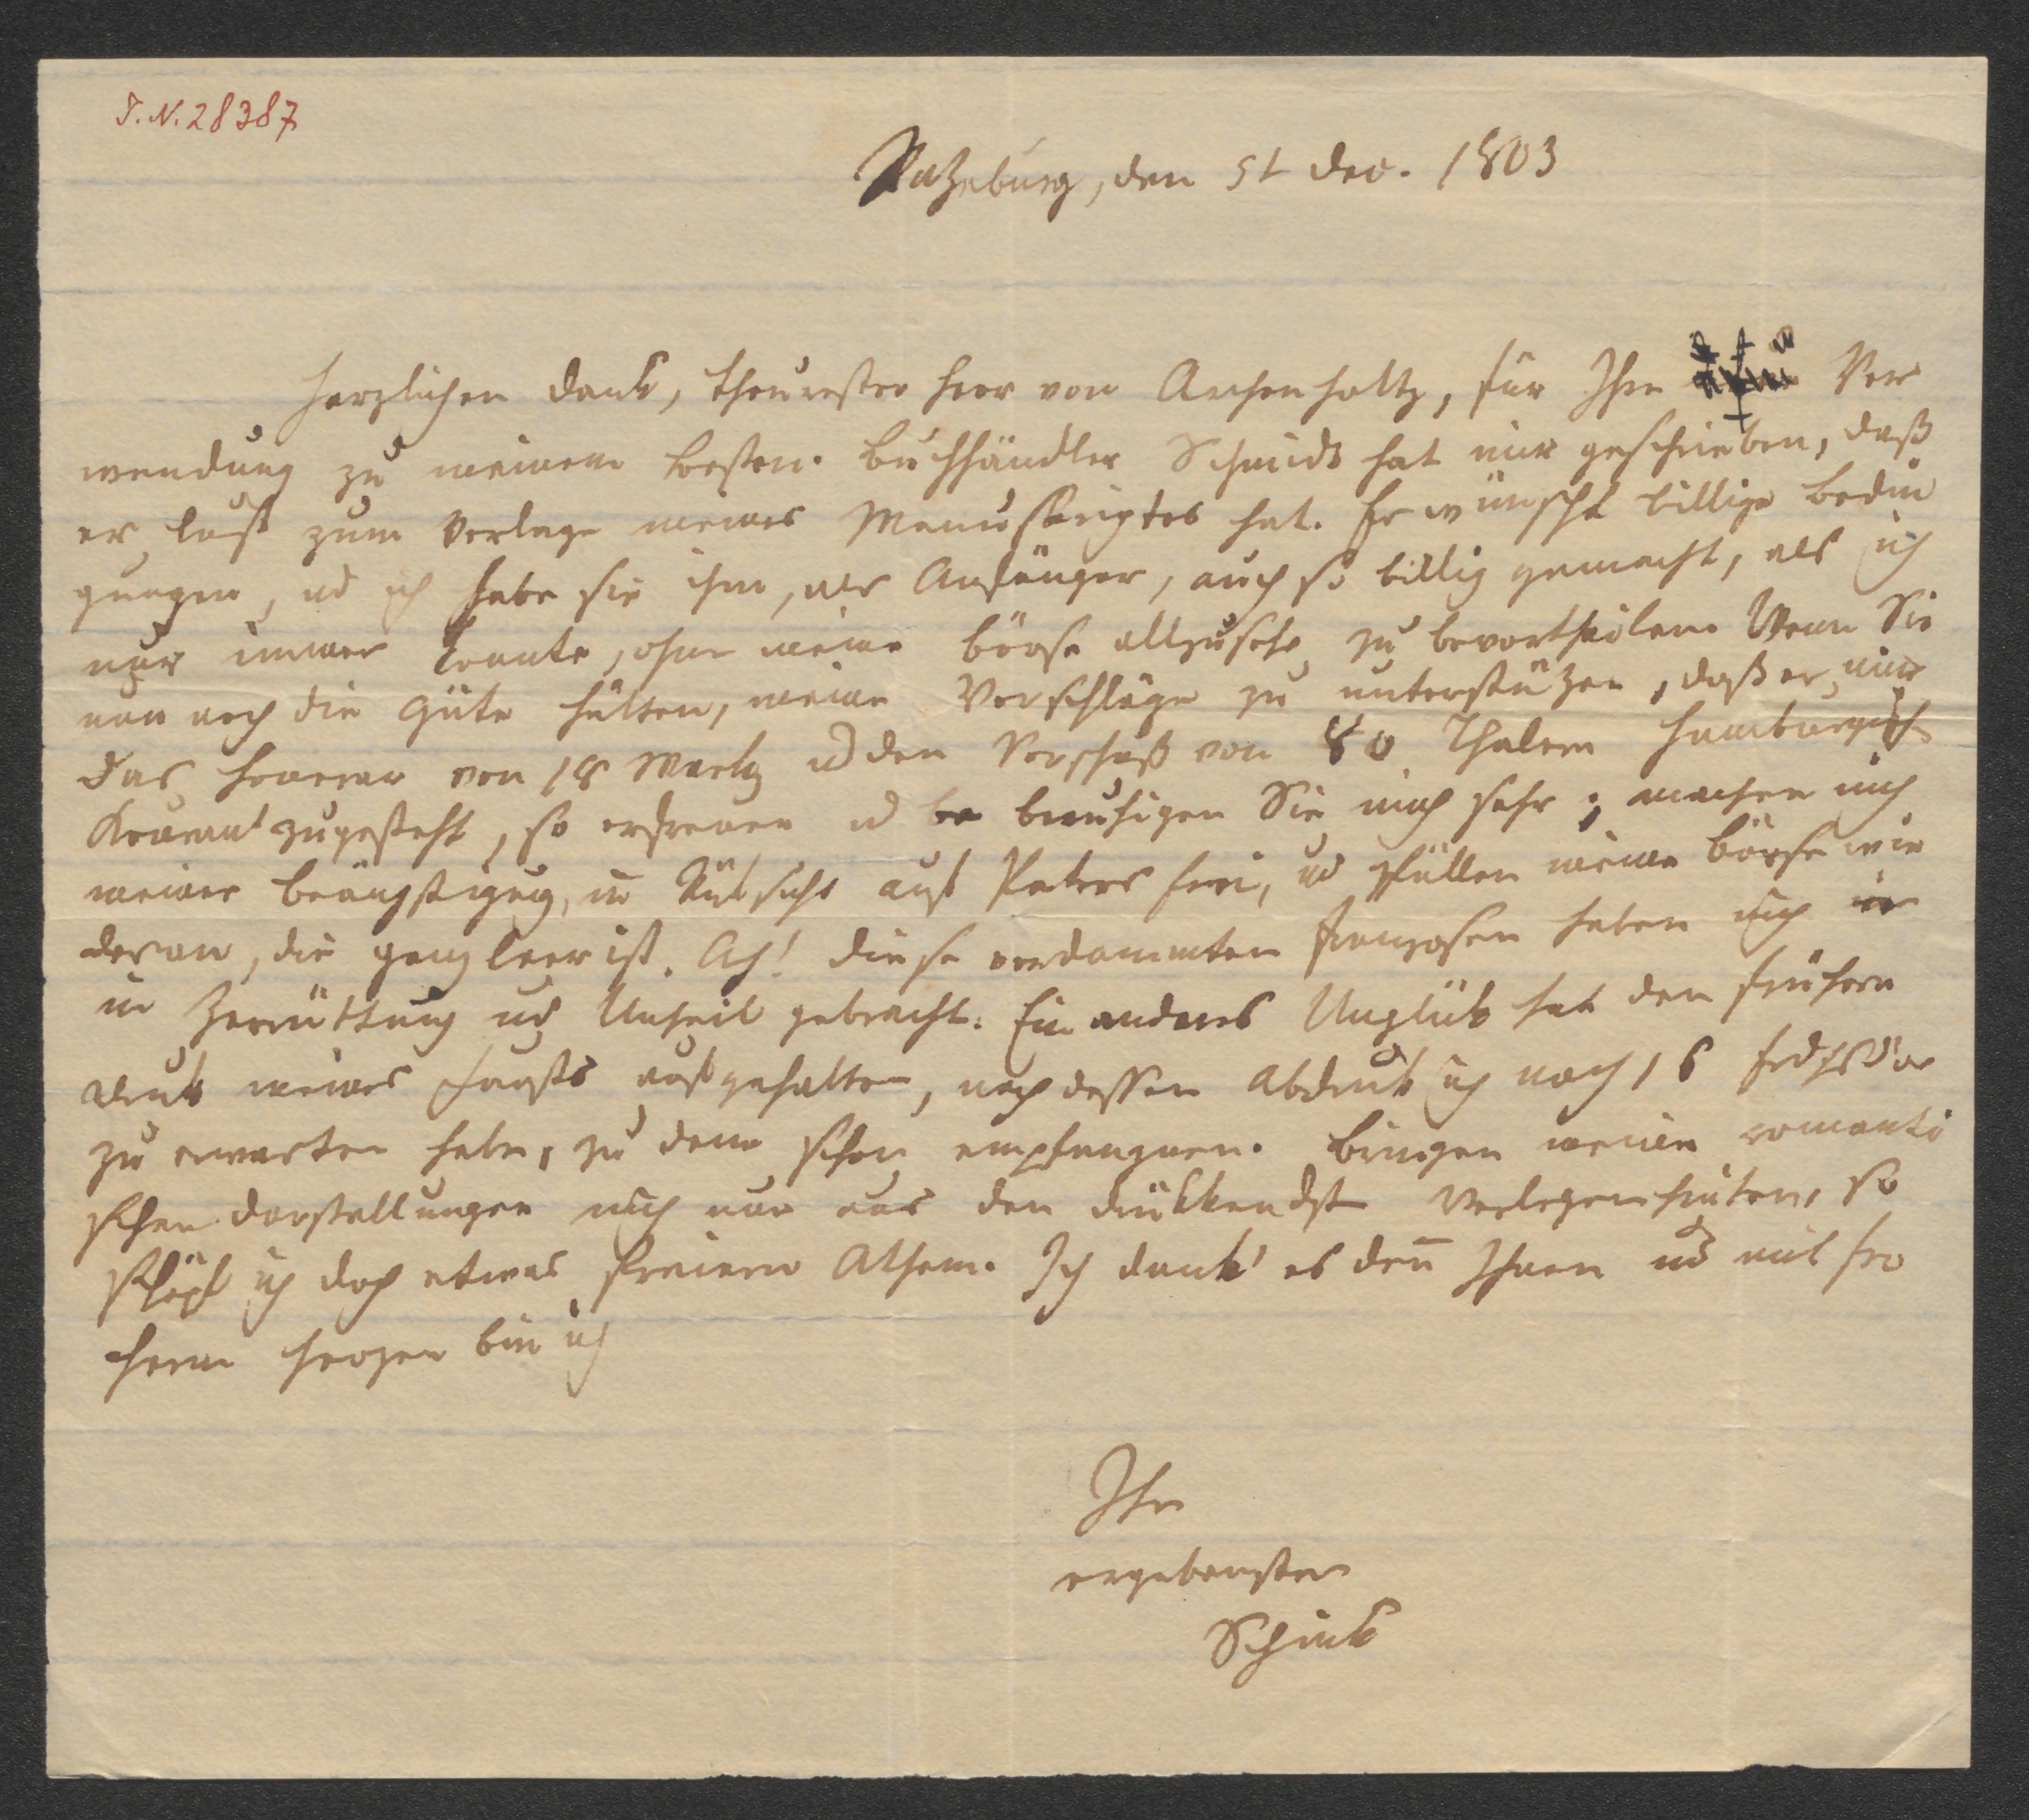 I. N. 28387
Ratzeburg, den 5t Dec. 1803
Herzlichen Dank, theurester Herr von Archenholtz, für Ihre Ver
wendung zu meinem Besten. Buchhändler Schmidt hat mir geschrieben, daß
er Lust zum Verlage meines Manuskriptes hat. Er wünscht billige Bedin
gungen, ud ich habe sie ihm, als Anfänger, auch so billig gemacht, als ich
nur immer konnte, ohne meine Börse allzusehr zu bevortheilen. Wenn Sie
nun noch die Güte hätten, meine Vorschläge zu unterstützen, daß er mir
das Honorar von 18 Mark ud den Vorschuß von 80 Thalern Hamburgisch
Kourant zugesteht, so erfreuen ud be beruhigen Sie mich sehr; machen mich
meiner Beängstigung, in Rüksicht auf Peters frei, ud füllen meine Börse wie
derum, die ganz leer ist. Ach! diese verdammten Franzosen haben mich
in Zerrüttung ud Unheil gebracht. Ein anderes Unglük hat den frühern
Druk meines Fausts aufgehalten, nach dessen Abdruk ich noch 16 Frdrsd'or
zu erwarten habe, zu dem schon empfangnen. Bringen meine romanti
schen Darstellungen mich nur aus den drükkendsten Verlegenheiten, so
schöpf ich doch etwas freiern Athem. Ich dank' es deñ Ihnen ud mit fro
hem Herzen bin ich
Ihr
ergebenster
Schink